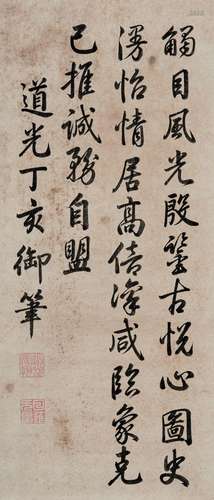 觸目風光殷鑒古悅心圖史
漫怡情居高倍凜咸臨象克
己推誠務自盟
道光丁亥御筆